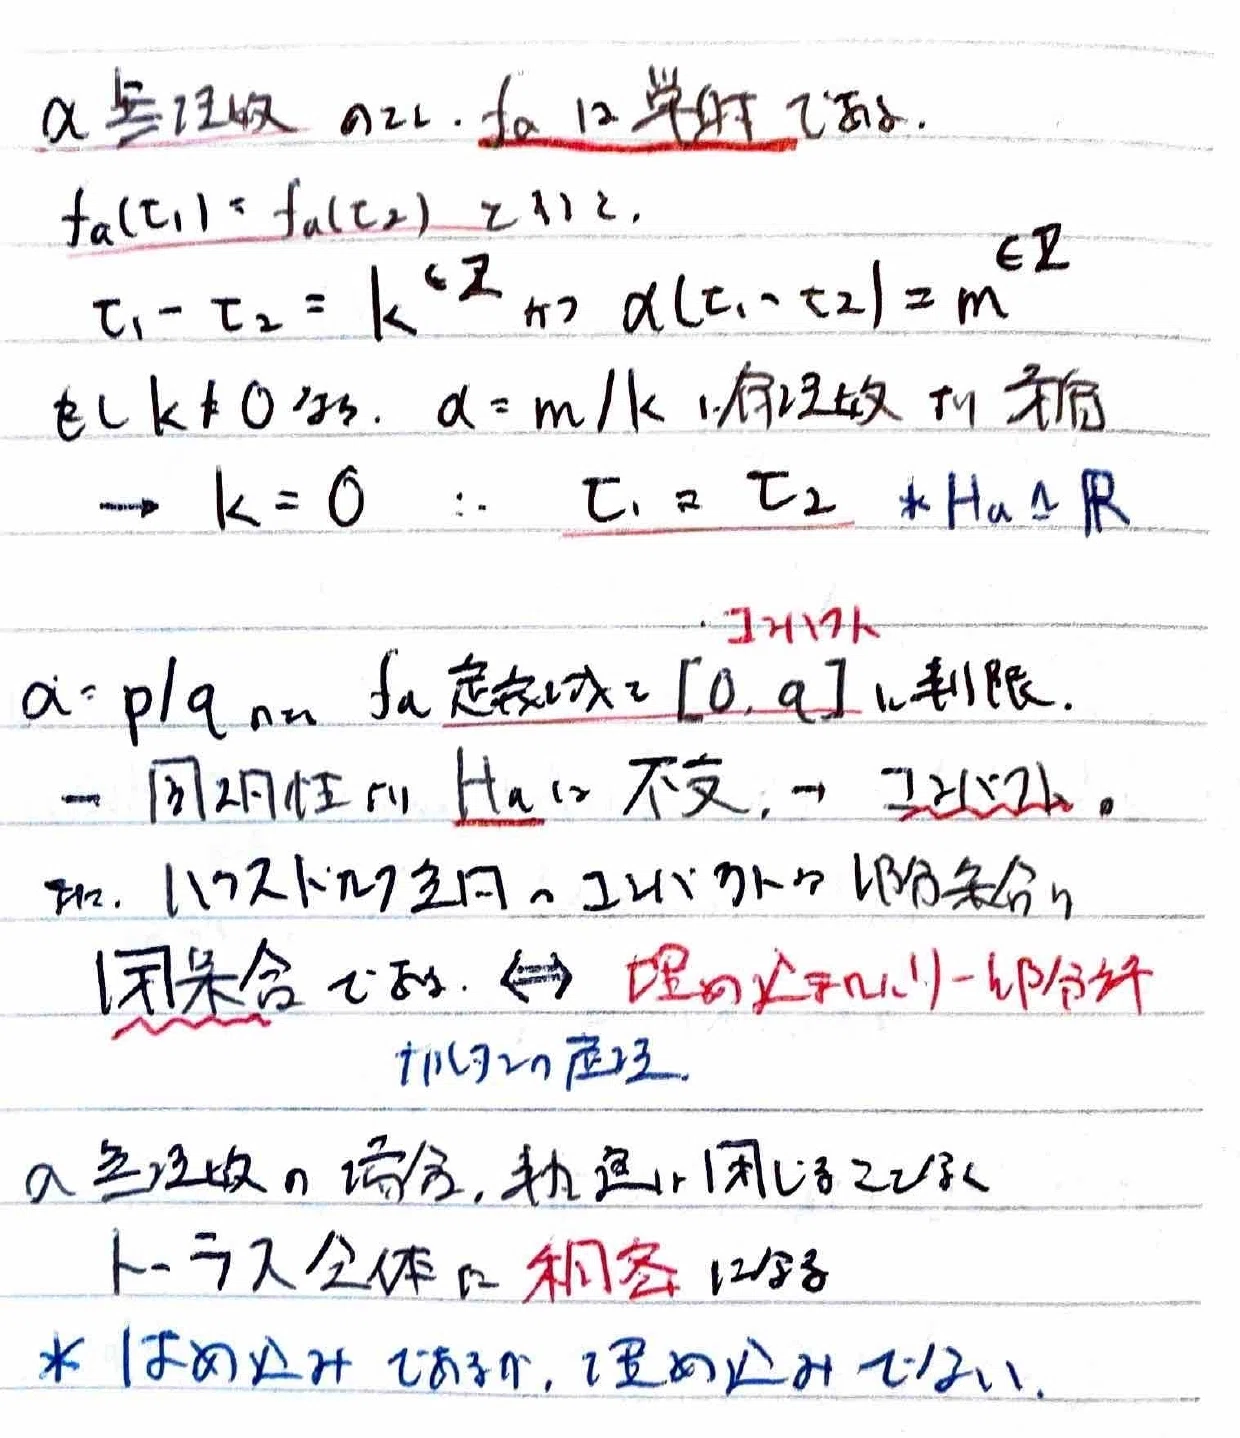 α 無理数 のとし. fα は単射である.
fα(τ₁) = fα(τ₂) とすると,
τ₁ - τ₂ = k ∈ℤ かつ α(τ₁ - τ₂) = m ∈ℤ
もし k ≠ 0 なら. α = m/k は有理数 より 矛盾
→ k = 0 ∴ τ₁ = τ₂ * Hα ≅ ℝ
コンパクト
α = p/q のとき fα 定義域を [0, q] に制限.
→ 周期性より Hα は 不変, → コンパクト。
また. ハウスドルフ空間のコンパクトな部分集合は
閉集合である. ⇔ 埋め込まれたリー部分群
カルタンの定理.
α 無理数の場合, 軌道は閉じることなく
トーラス全体に稠密になる
* はめ込みであるが, 埋め込みでない.